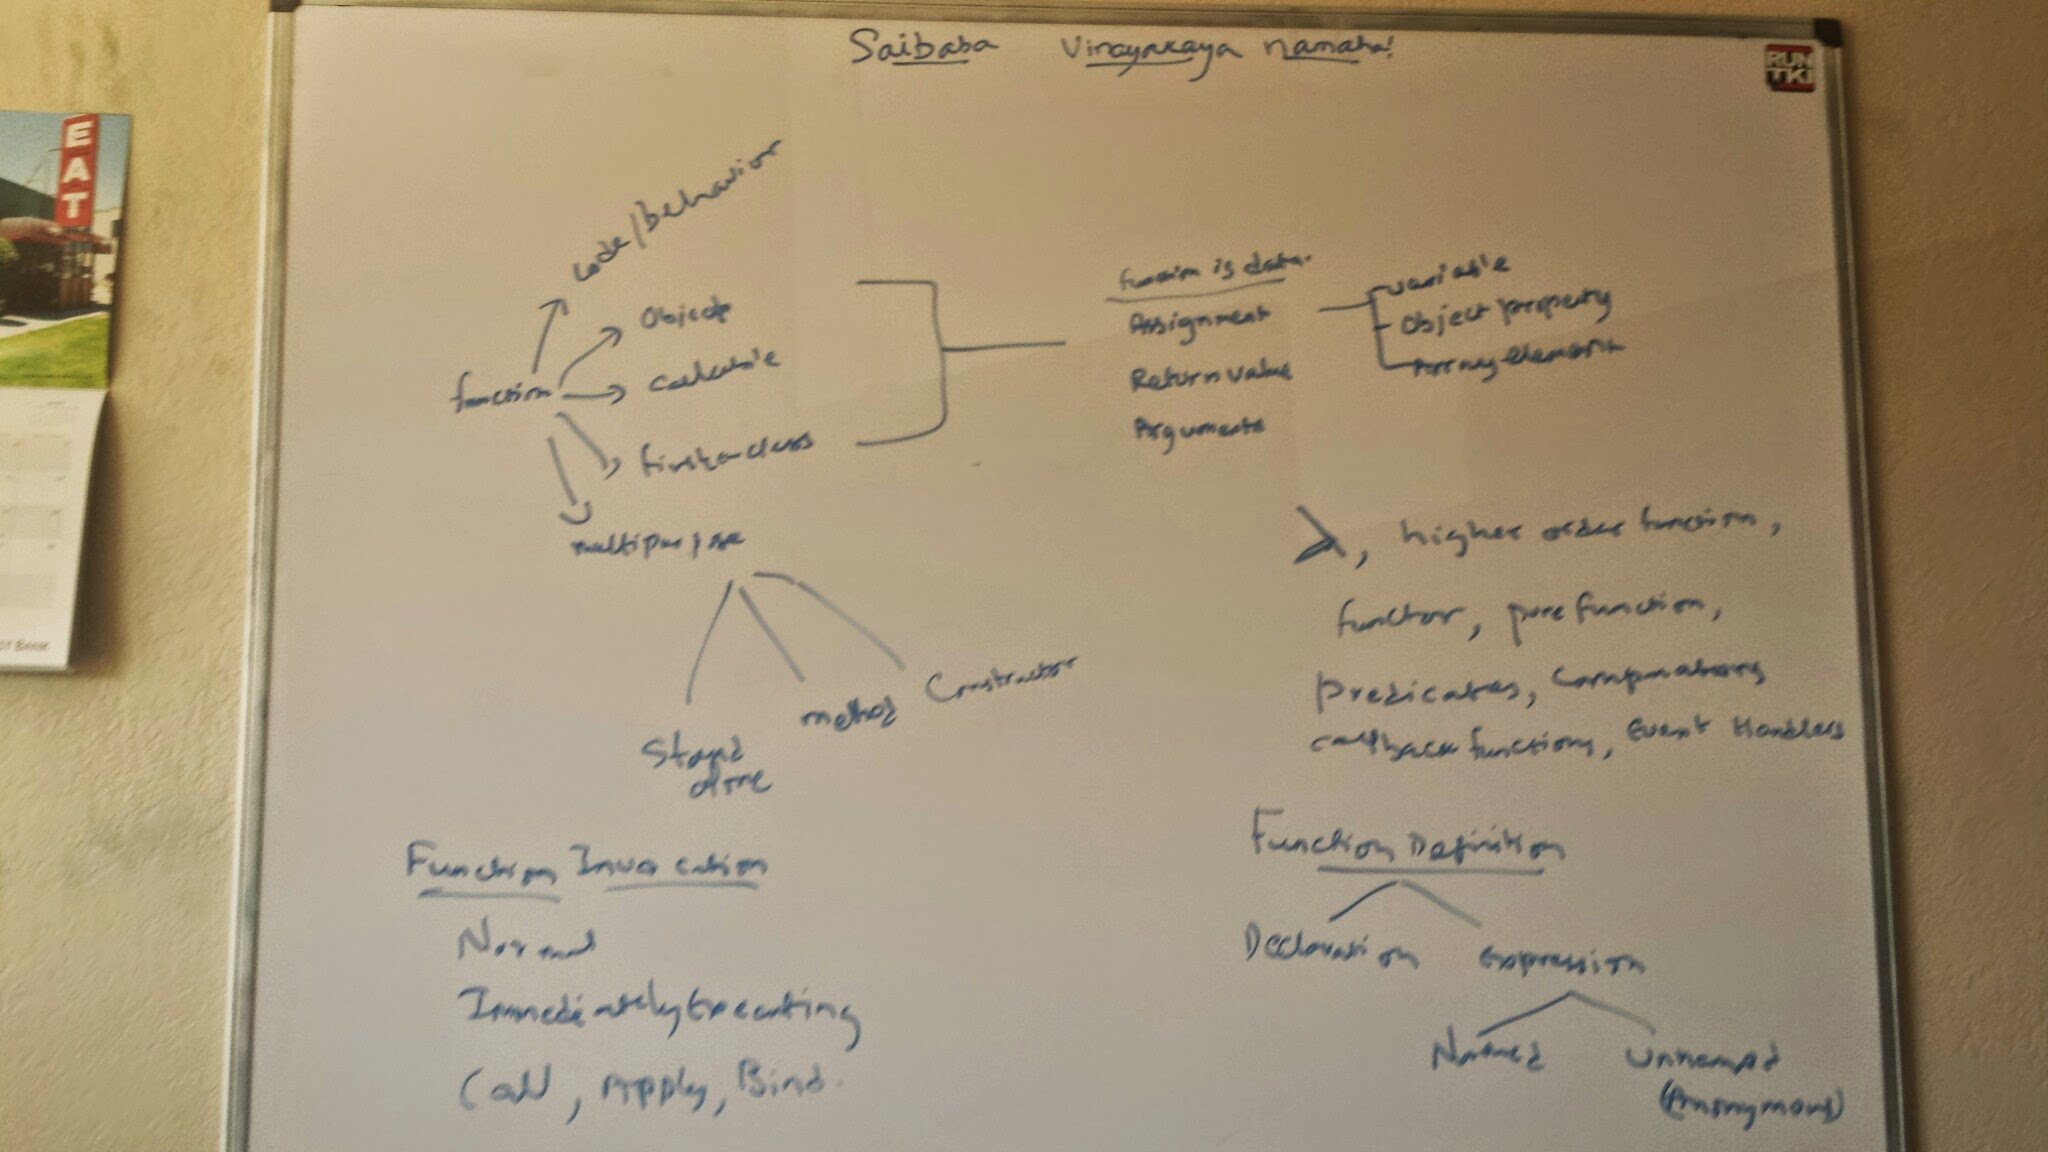 Saibaba Vinayakaya namaha!
RUN
TKI
EAT
Code/Behavior
Object
function
first-class
multipurpose
Stand
alone
method
Constructor
function is data.
Assignment
Return value
Arguments
variable
Object property
Array element
λ, higher order function,
functor, pure function,
predicates,
callback functions, Event Handlers
Function Invocation
Normal
Immediately Executing
Call, Apply, Bind.
Function Definition
Declaration
expression
Named
unnamed
(Anonymous)
BANK